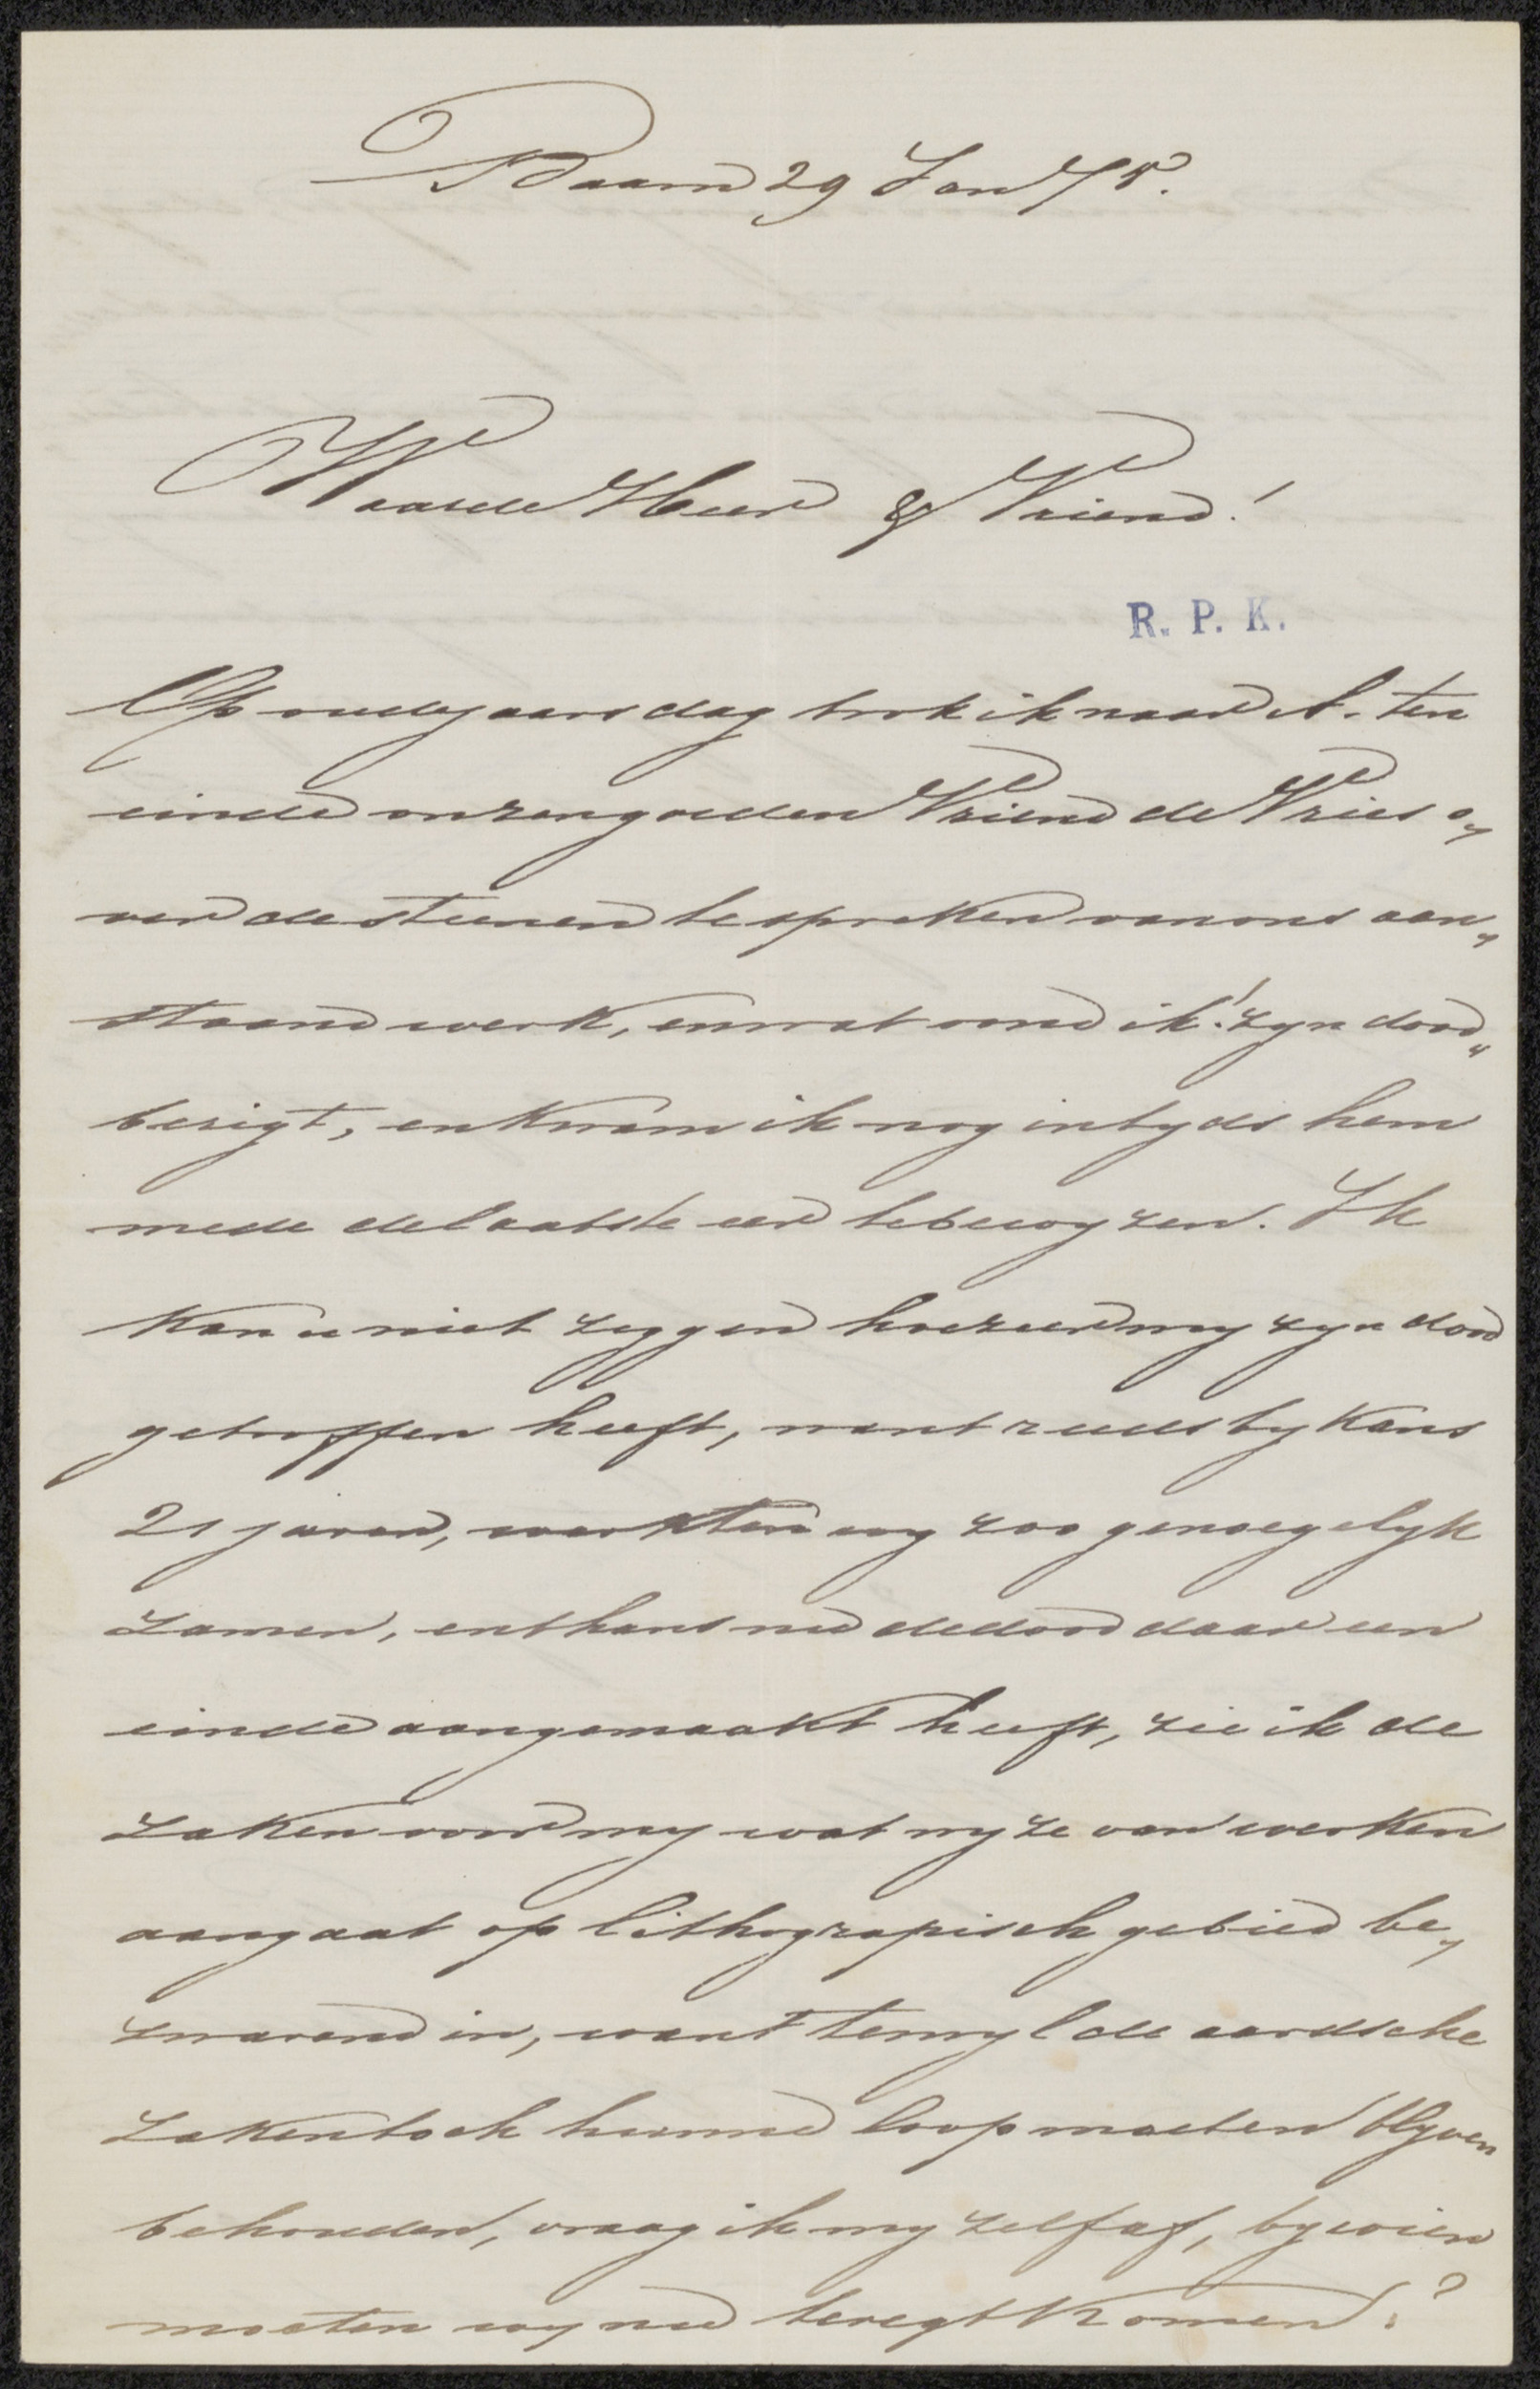 Rdaam 29 Jan 75.
Waarde Heer & Vriend!
R. P. K.
Op oudejaarsdag trok ik naar A. ten
einde onzen goeden Vriend de Vries o„
ver de steenen te spreken van ons aan„
staand werk, en wat vond ik! zyn dood„
berigt, en kwam ik nog in tyds hem
mede de laatste eer te bewyzen. Ik
kan u niet zeggen hoezeer my zyn dood
getroffen heeft, want reeds by kans
21 jaren, werkten wy zoo genoegelyk
zamen, en thans nu de dood daar een
einde aangemaakt heeft, zie ik de
zaken voor my wat wyze van werken
aangaat op lithograpisch gebied be„
zwarend in, want terwyl de aardsche
zaken toch hunne loop moeten blyven
behouden, vraag ik my zelf af, by wien
moeten wy nu teregt komen?